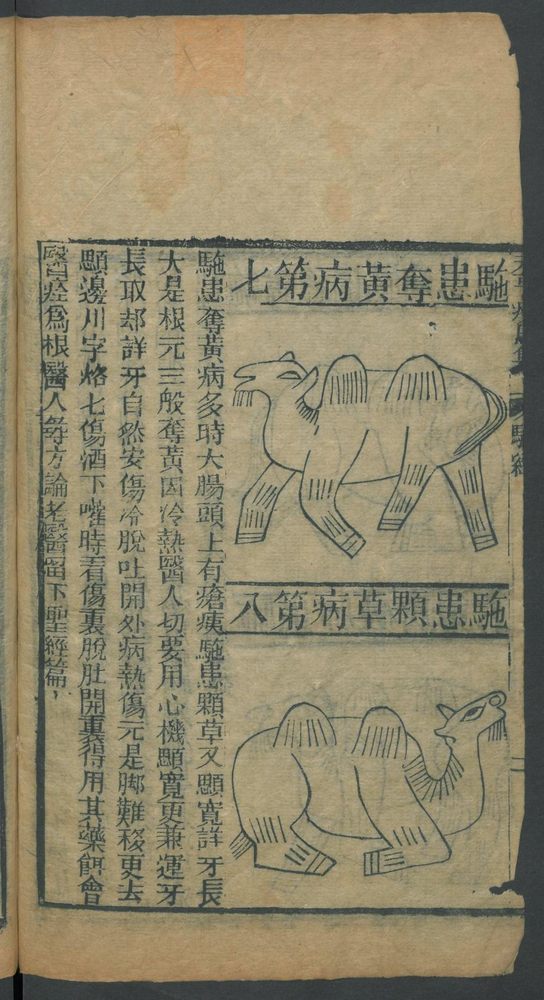 駞患奪黃病第七
駞患顆草病第八
駞患奪黃病多時大腸頭上有瘡痍駞患顆草又顋寬詳牙長
大是根元三般奪黃因冷熱醫人切要用心機顋寬更兼運牙
長取却詳牙自然安傷冷脫吐開外病熱傷元是脚難移更去
顋邊川字烙七傷酒下嚾時看傷裏脫肚開裏得用其藥餌會
醫四症爲根醫人每方論老醫留下聖經篇
駞經